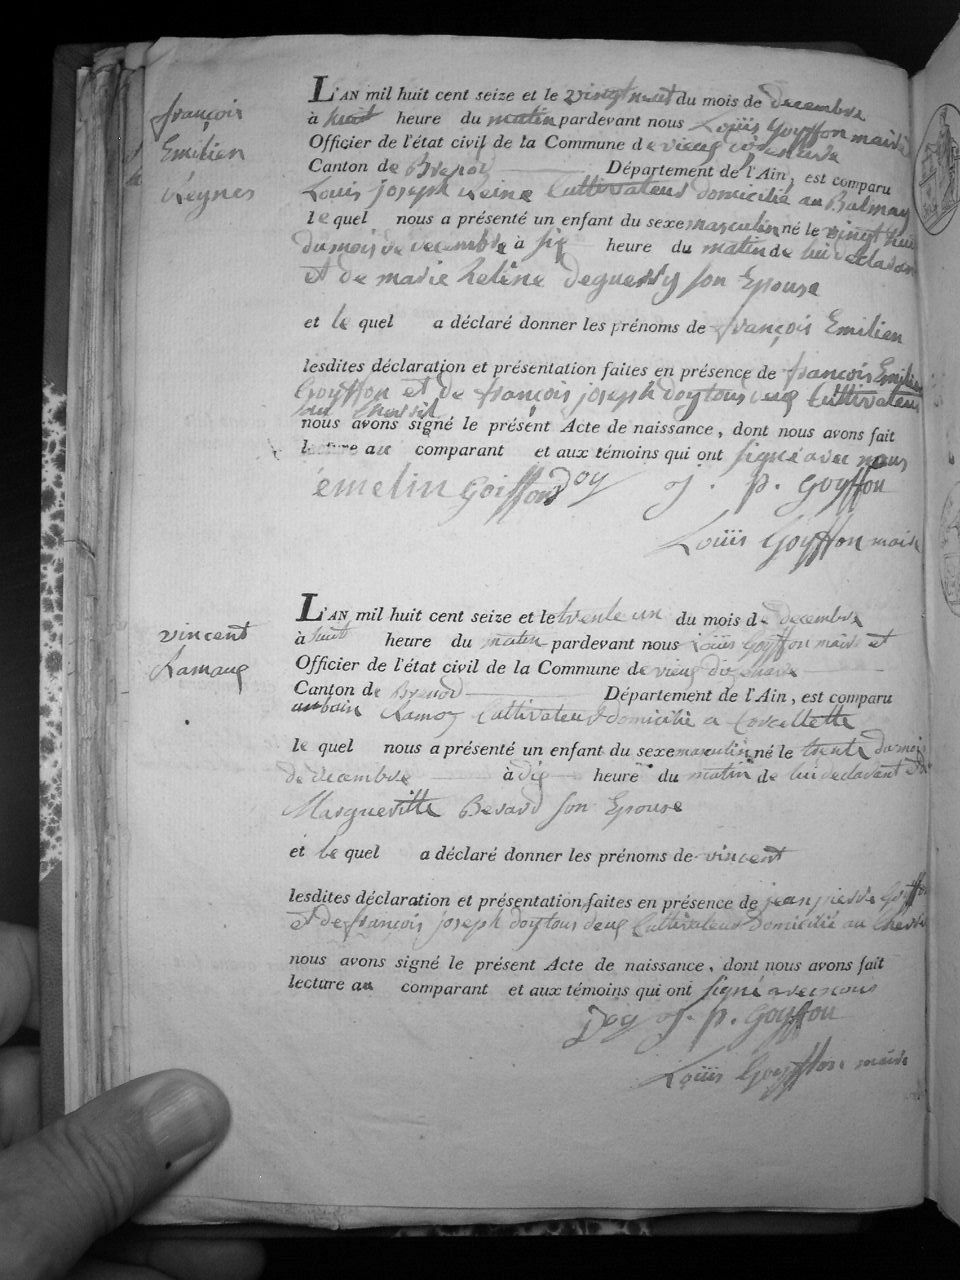 françois
Emilien
Reynes
L'AN mil huit cent seize et le vingt neuf du mois de decembre
à huit heure du matin pardevant nous Louïis Goyffon maire
Officier de l'état civil de la Commune de vieux
Canton de Brenod Département de l'Ain, est comparu
Louis joseph Reine Cultivateur domicilié au Balmay
lequel nous a présenté un enfant du sexe masculin né le vingt huit
du mois de decembre à six heure du matin de lui declarant
et de marie heleine son Epouse
et le quel a déclaré donner les prénoms de françois Emilien
lesdites déclaration et présentation faites en présence de francois Emilien
Goyffon et de françois joseph doy tous deux Cultivateurs
au
nous avons signé le présent Acte de naissance, dont nous avons fait
lecture au comparant et aux témoins qui ont signé avec nous
émelin Goiffon Doy j. p. Goyffon
Louïis Goyffon maire
vincent
Ramaux
L'AN mil huit cent seize et le trente un du mois de decembre
à huit heure du matin pardevant nous Louïis Goyffon maire et
Officier de l'état civil de la Commune de vieux
Canton de Brenod Département de l'Ain, est comparu
aubain Ramoz Cultivateur domicilié a Corcellette
le quel nous a présenté un enfant du sexe masculin né le trente du mois
de decembre à dix heure du matin de lui declarant et de
Margueritte Berard son Epouse
et le quel a déclaré donner les prénoms de vincent
lesdites déclaration et présentation faites en présence de jean pierre Goyffon
et de françois joseph doy tous deux Cultivateur Domicilié au
nous avons signé le présent Acte de naissance, dont nous avons fait
lecture au comparant et aux témoins qui ont signé avec nous
Doy j. p. Goyffon
Louïis Goyffon maire